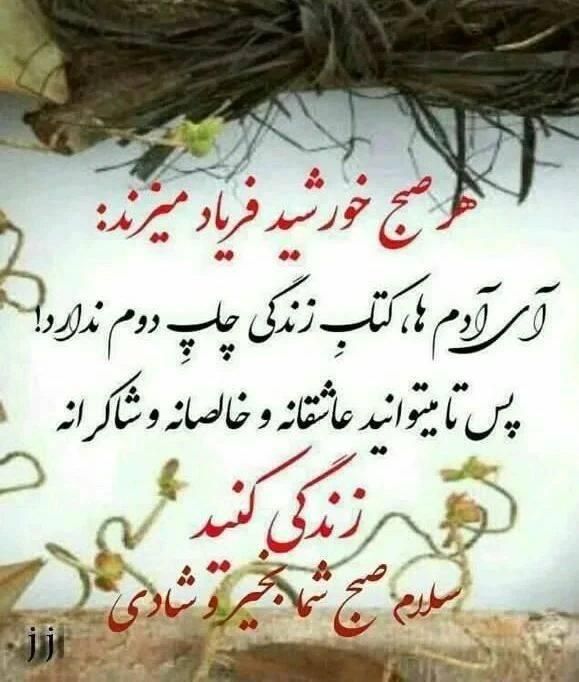 هر صبح خورشید فریاد میزند:
آی آدم ها، کتابِ زندگی چاپِ دوم ندارد!
پس تا میتوانید عاشقانه و خالصانه و شاکرانه
زندگی کنید
سلام صبح شما بخیر و شادی